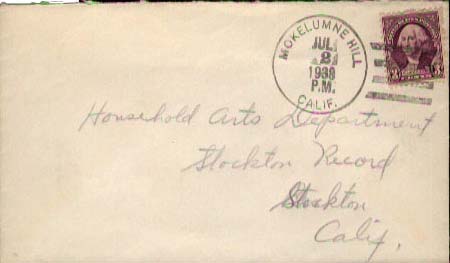 MOKELUMNE HILL
JUL
2
1938
P.M.
CALIF.
Household Arts Department
Stockton Record
Stockton
Calif.